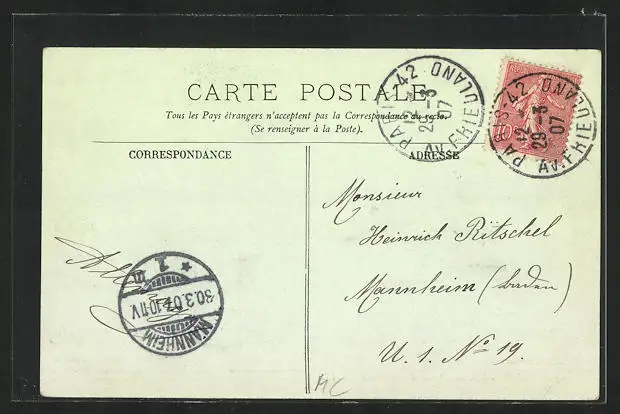 CARTE POSTALE
Tous les Pays étrangers n'acceptent pas la Correspondance au recto.
(Se renseigner à la Poste).
CORRESPONDANCE
ADRESSE
PARIS-42
12
29-3
07
AV. FRIEDLAND
PARIS-42
12
29-3
07
AV. FRIEDLAND
10c
Monsieur
Heinrich Ritschel
Mannheim (Baden)
U. 1. No 19.
MANNHEIM
30.3.07.10-11V.
* 1 m